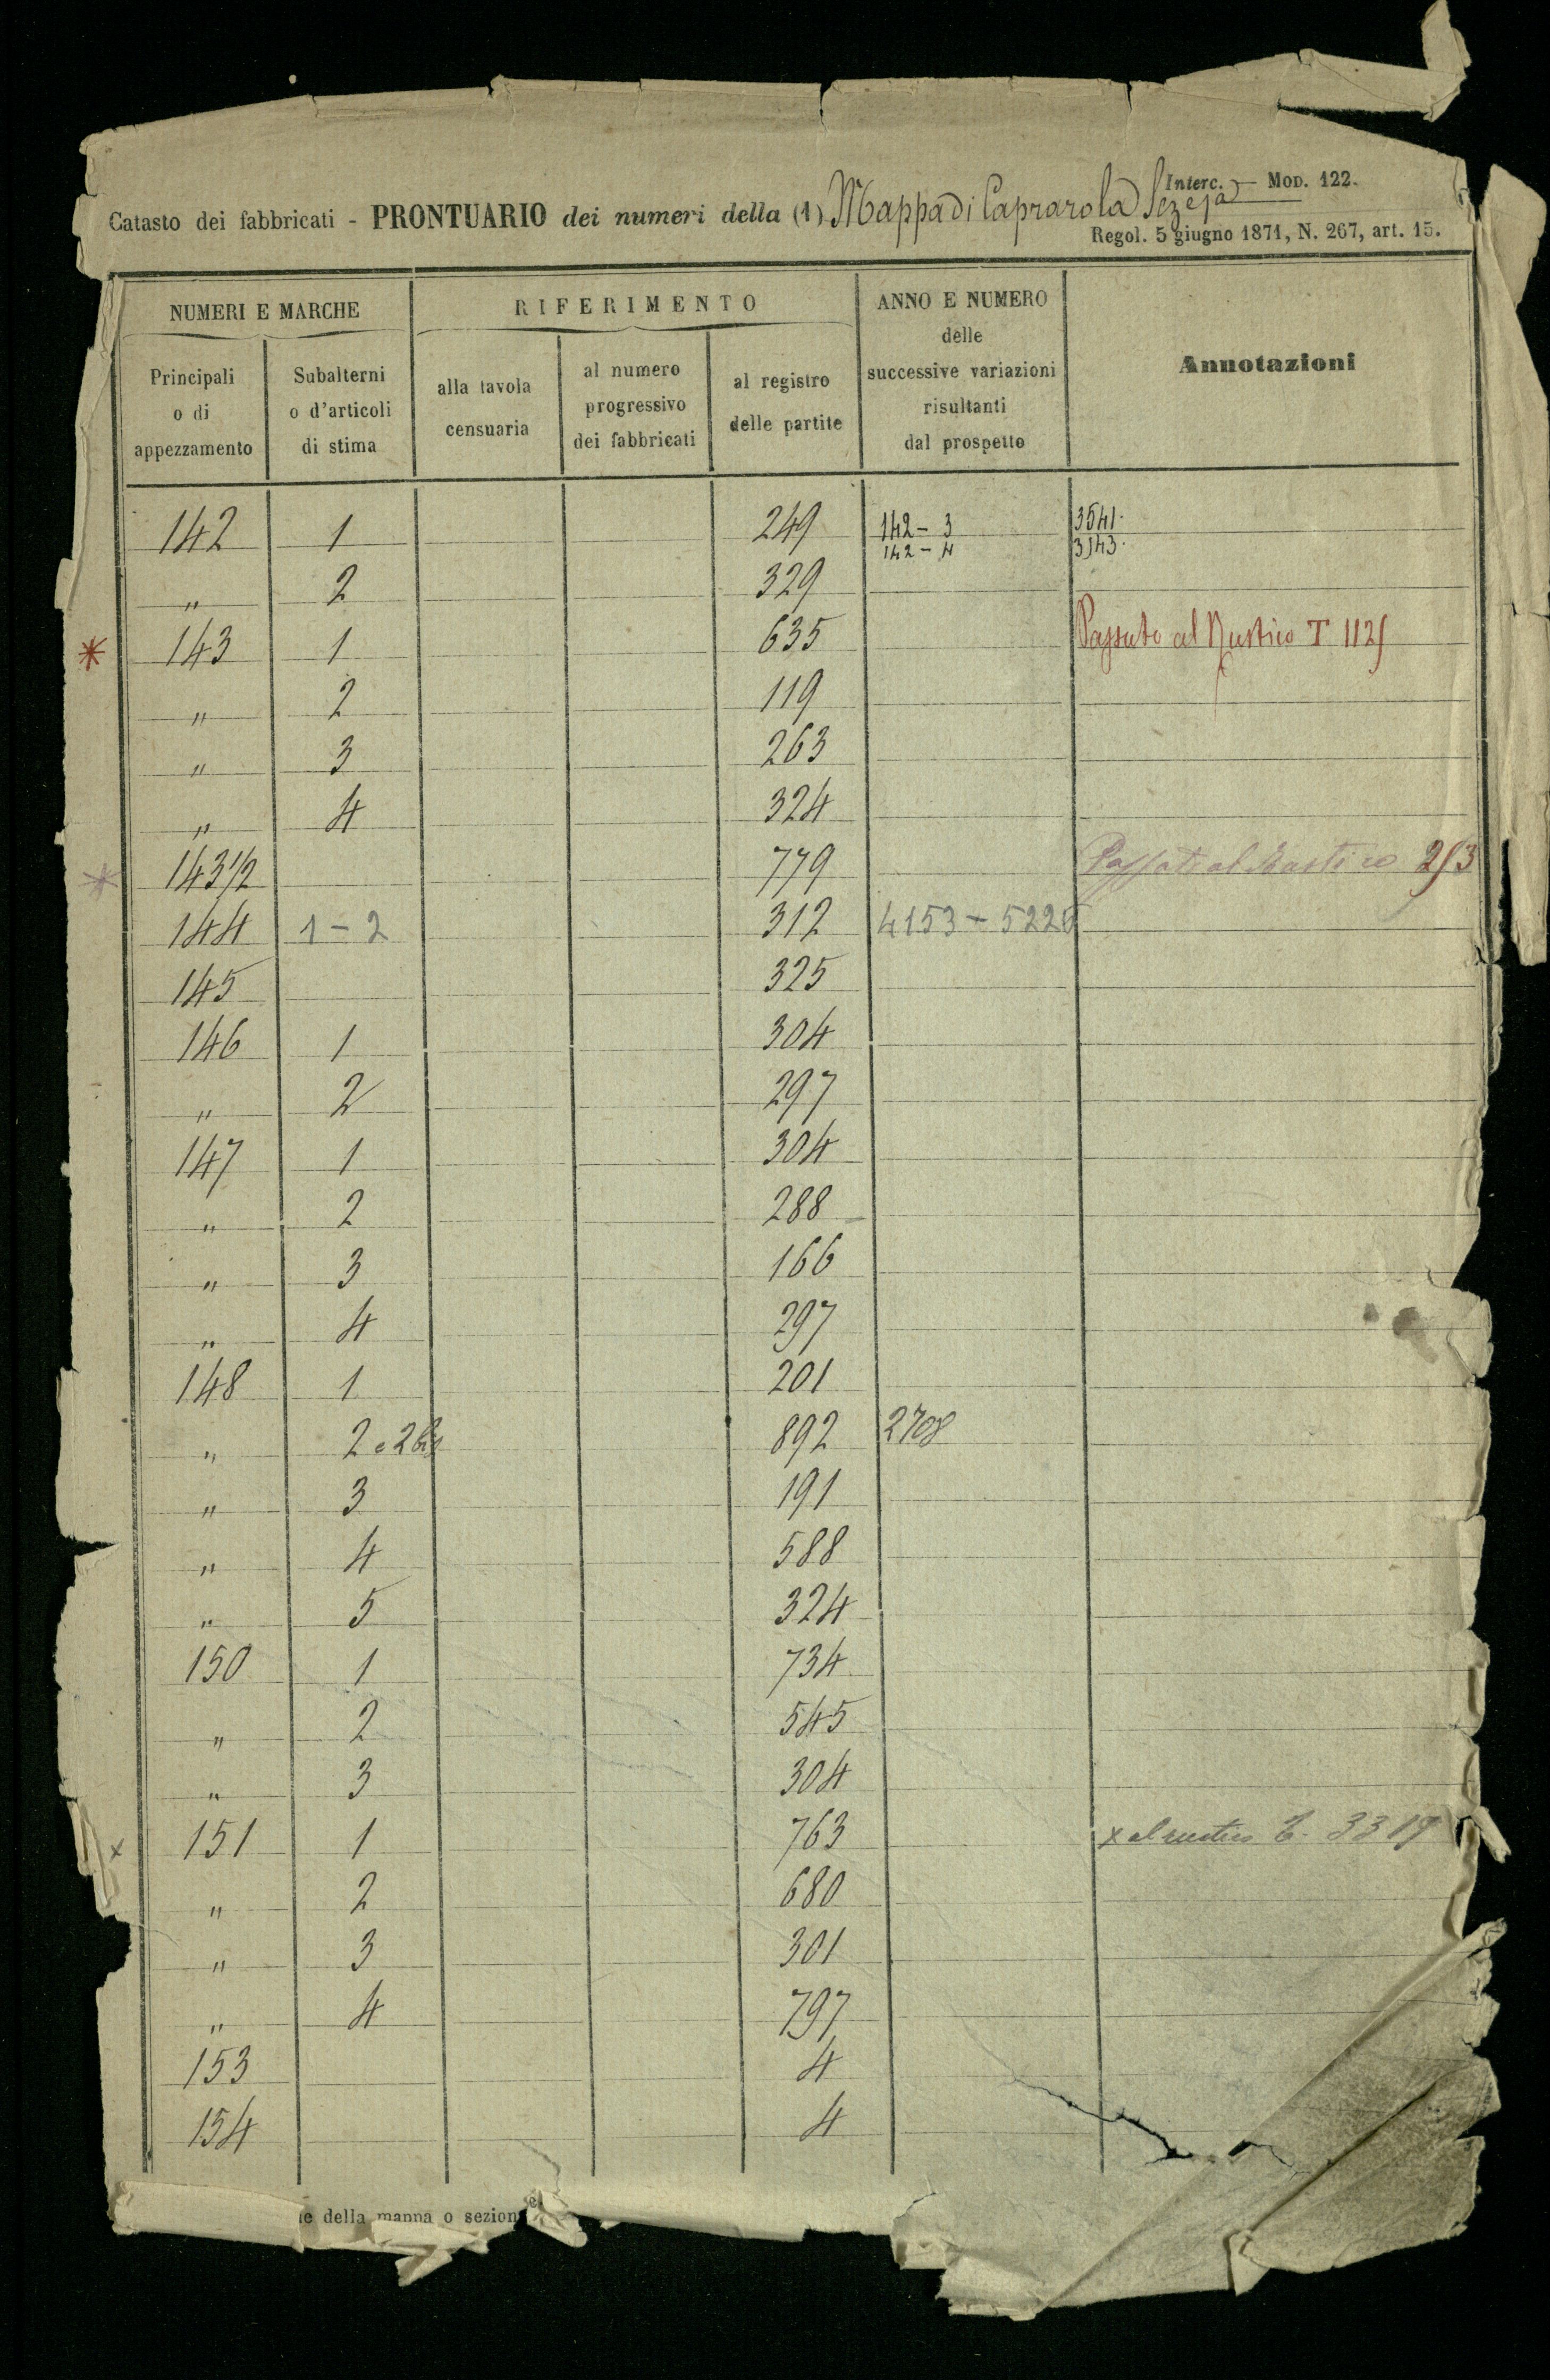 Interc. — MOD. 122.
Catasto dei fabbricati - PRONTUARIO dei numeri della (1) Mappa di Caprarola
Regol. 5 giugno 1871, N. 267, art. 15.
NUMERI E MARCHE RIFERIMENTO ANNO E NUMERO delle successive variazioni risultanti dal prospetto Annotazioni
Principali o di appezzamento Subalterni o d'articoli di stima alla tavola censuaria al numero progressivo dei fabbricati al registro delle partite
142 1 249 142 - 3 3541.
142 - 4 3143.
" 2 329
* 143 1 635 Passato al Rustico T 112
" 2 119
" 3 263
" 4 324
* 143 1/2 779 Passato al Rustico
144 1 - 2 312 4153 - 5226
145 325
146 1 304
" 2 297
147 1 304
" 2 288
" 3 166
" 4 297
148 1 201
" 2 e 2 bis 892 2708
" 3 191
" 4 588
" 5 324
150 1 734
" 2 545
" 3 304
x 151 1 763 x al rustico T. 3319
" 2 680
" 3 301
" 4 797
153 4
154 4
della mappa o sezione